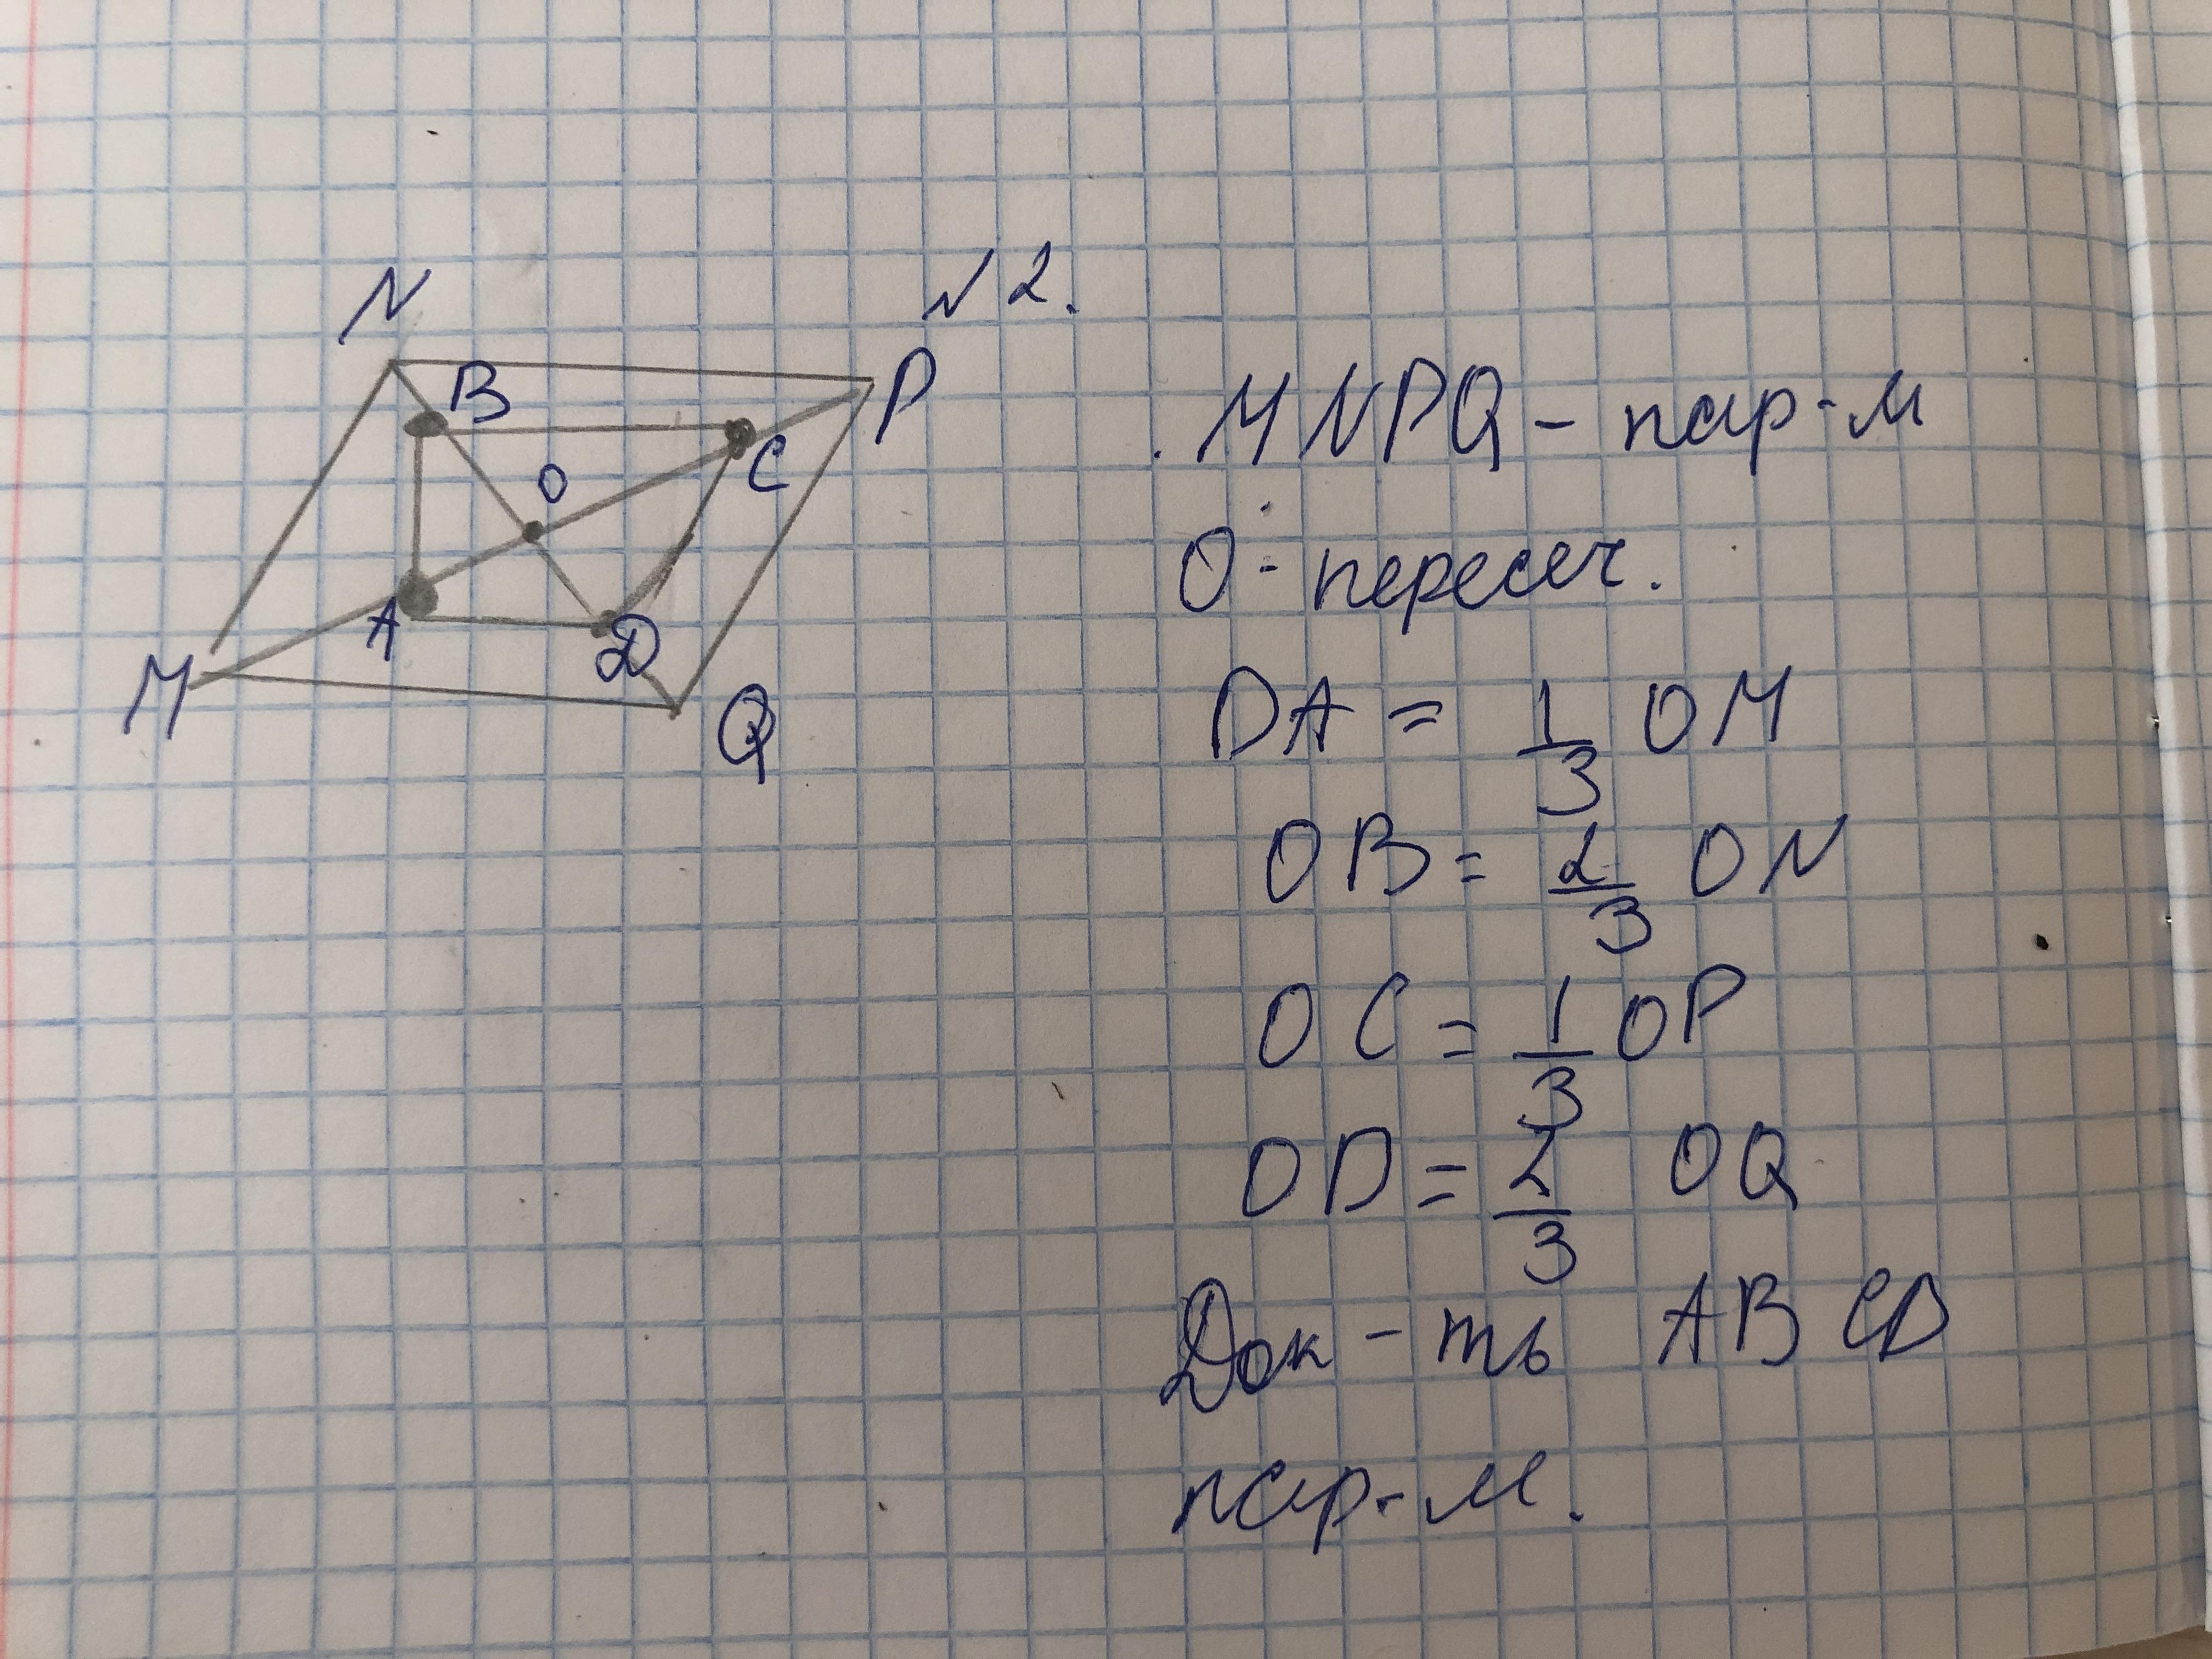 №2.
N
B
P
O
C
A
D
M
Q
MNPQ - пар-м
O - пересеч.
DA = 1/3 OM
OB = 2/3 ON
OC = 1/3 OP
OD = 2/3 OQ
Док-ть ABCD
пар-м.